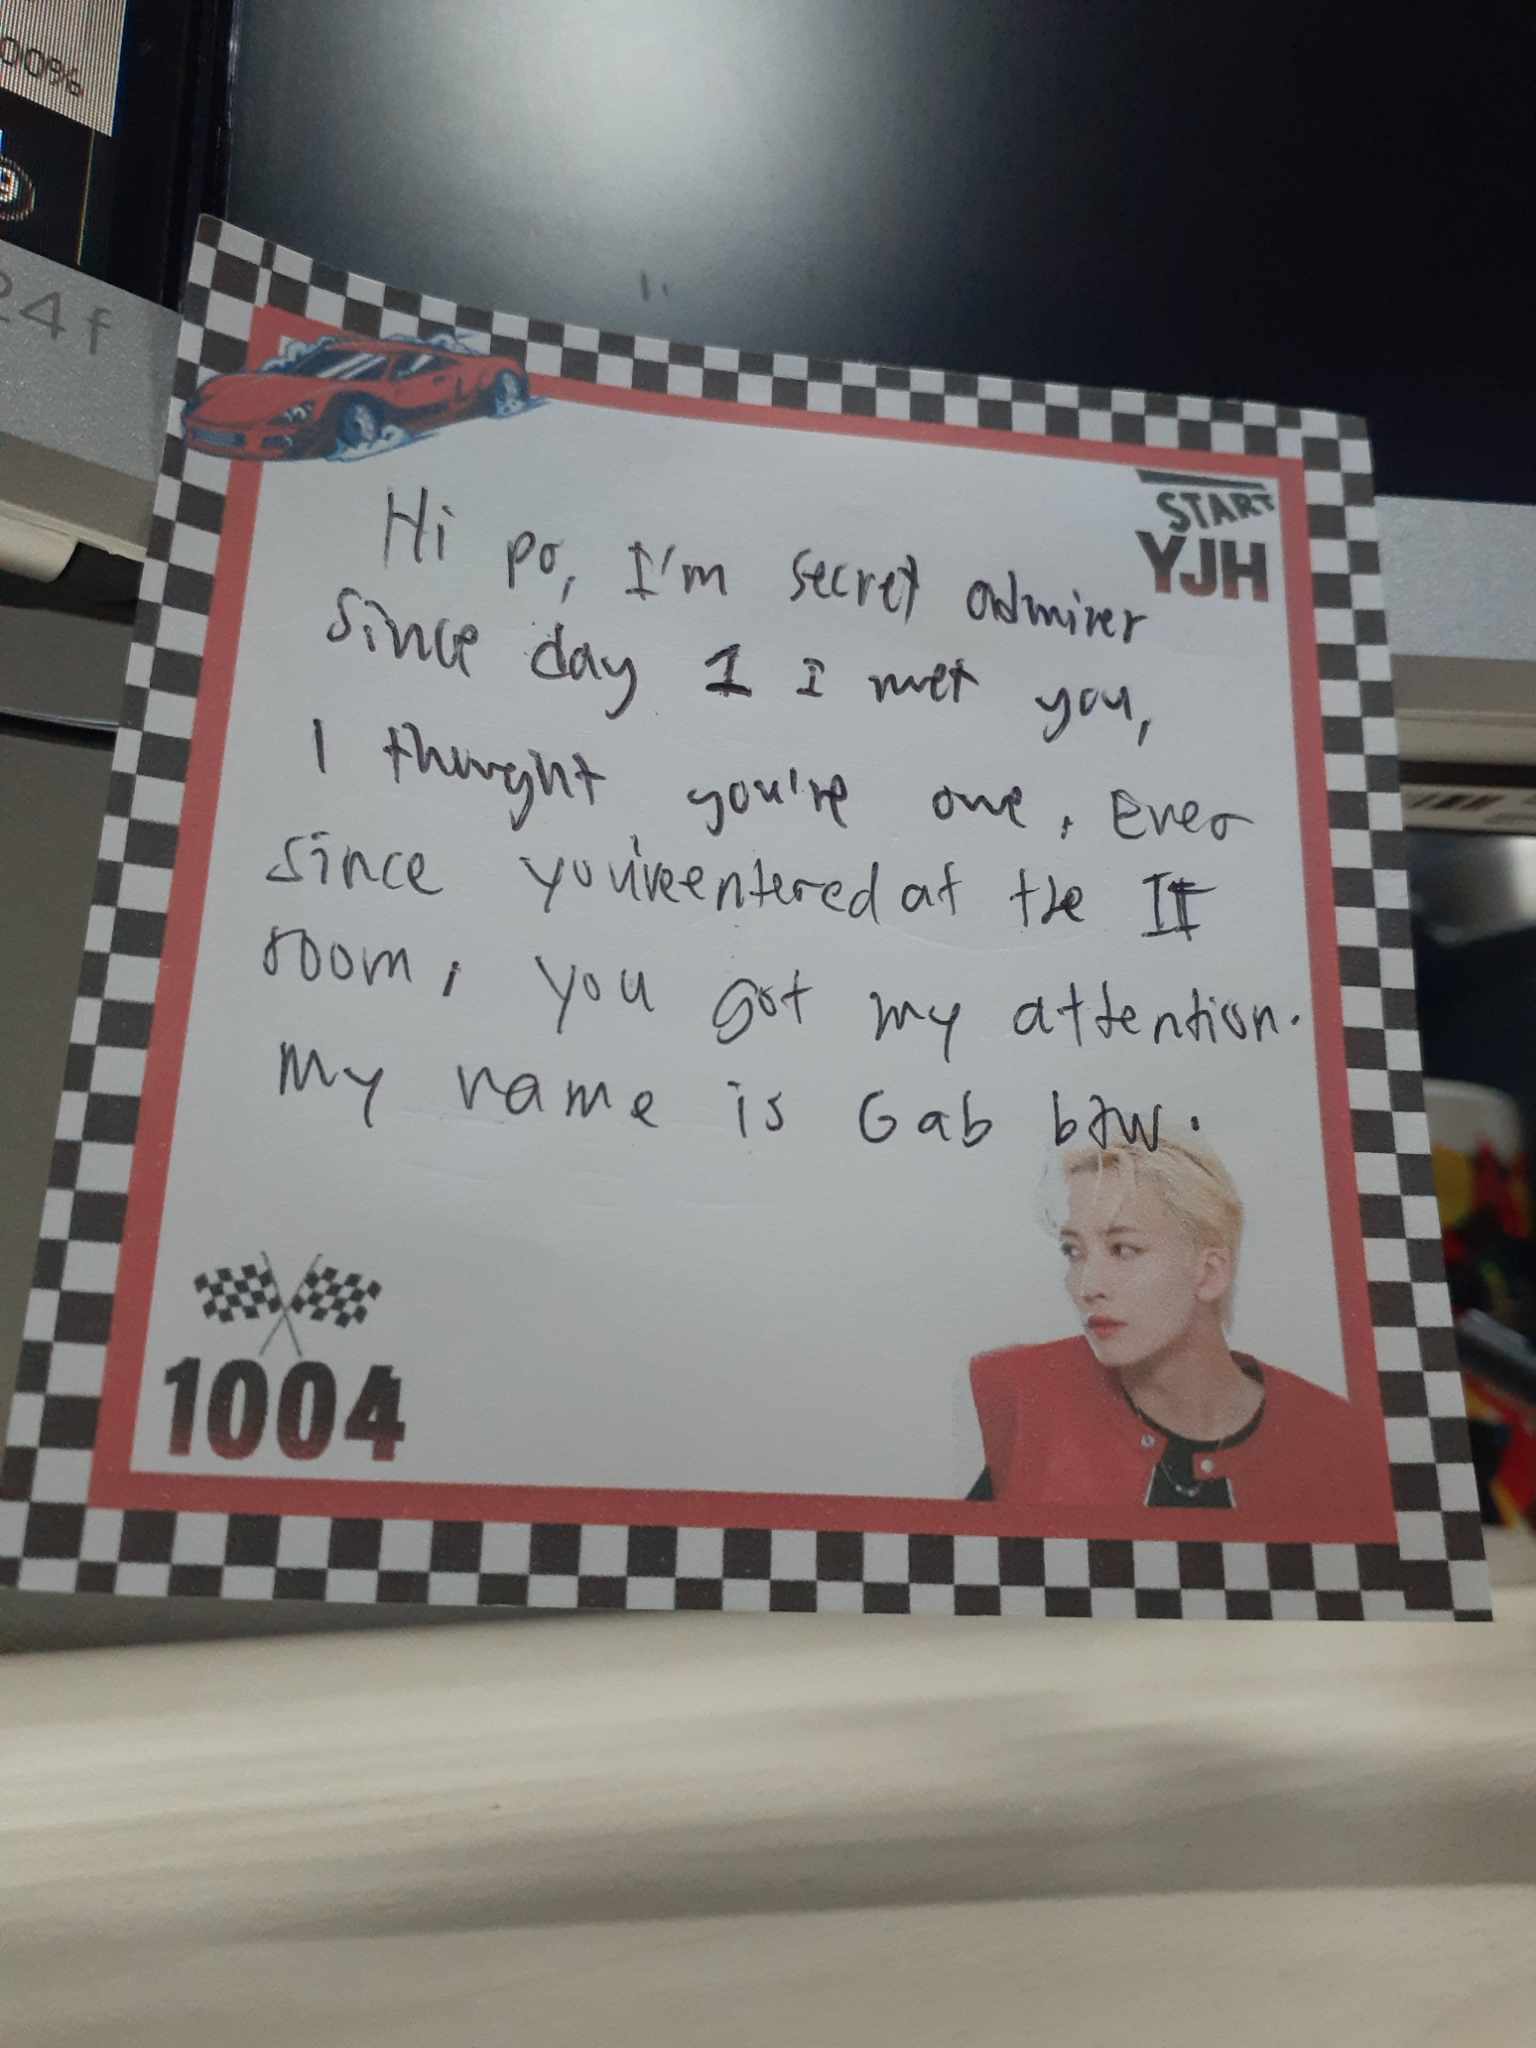 00%
24f
START
YJH
Hi po, I'm secret admirer
since day 1 I met you,
I thought you're one. Ever
since you'veentered at the IT
room, you got my attention.
My name is Gab btw.
1004